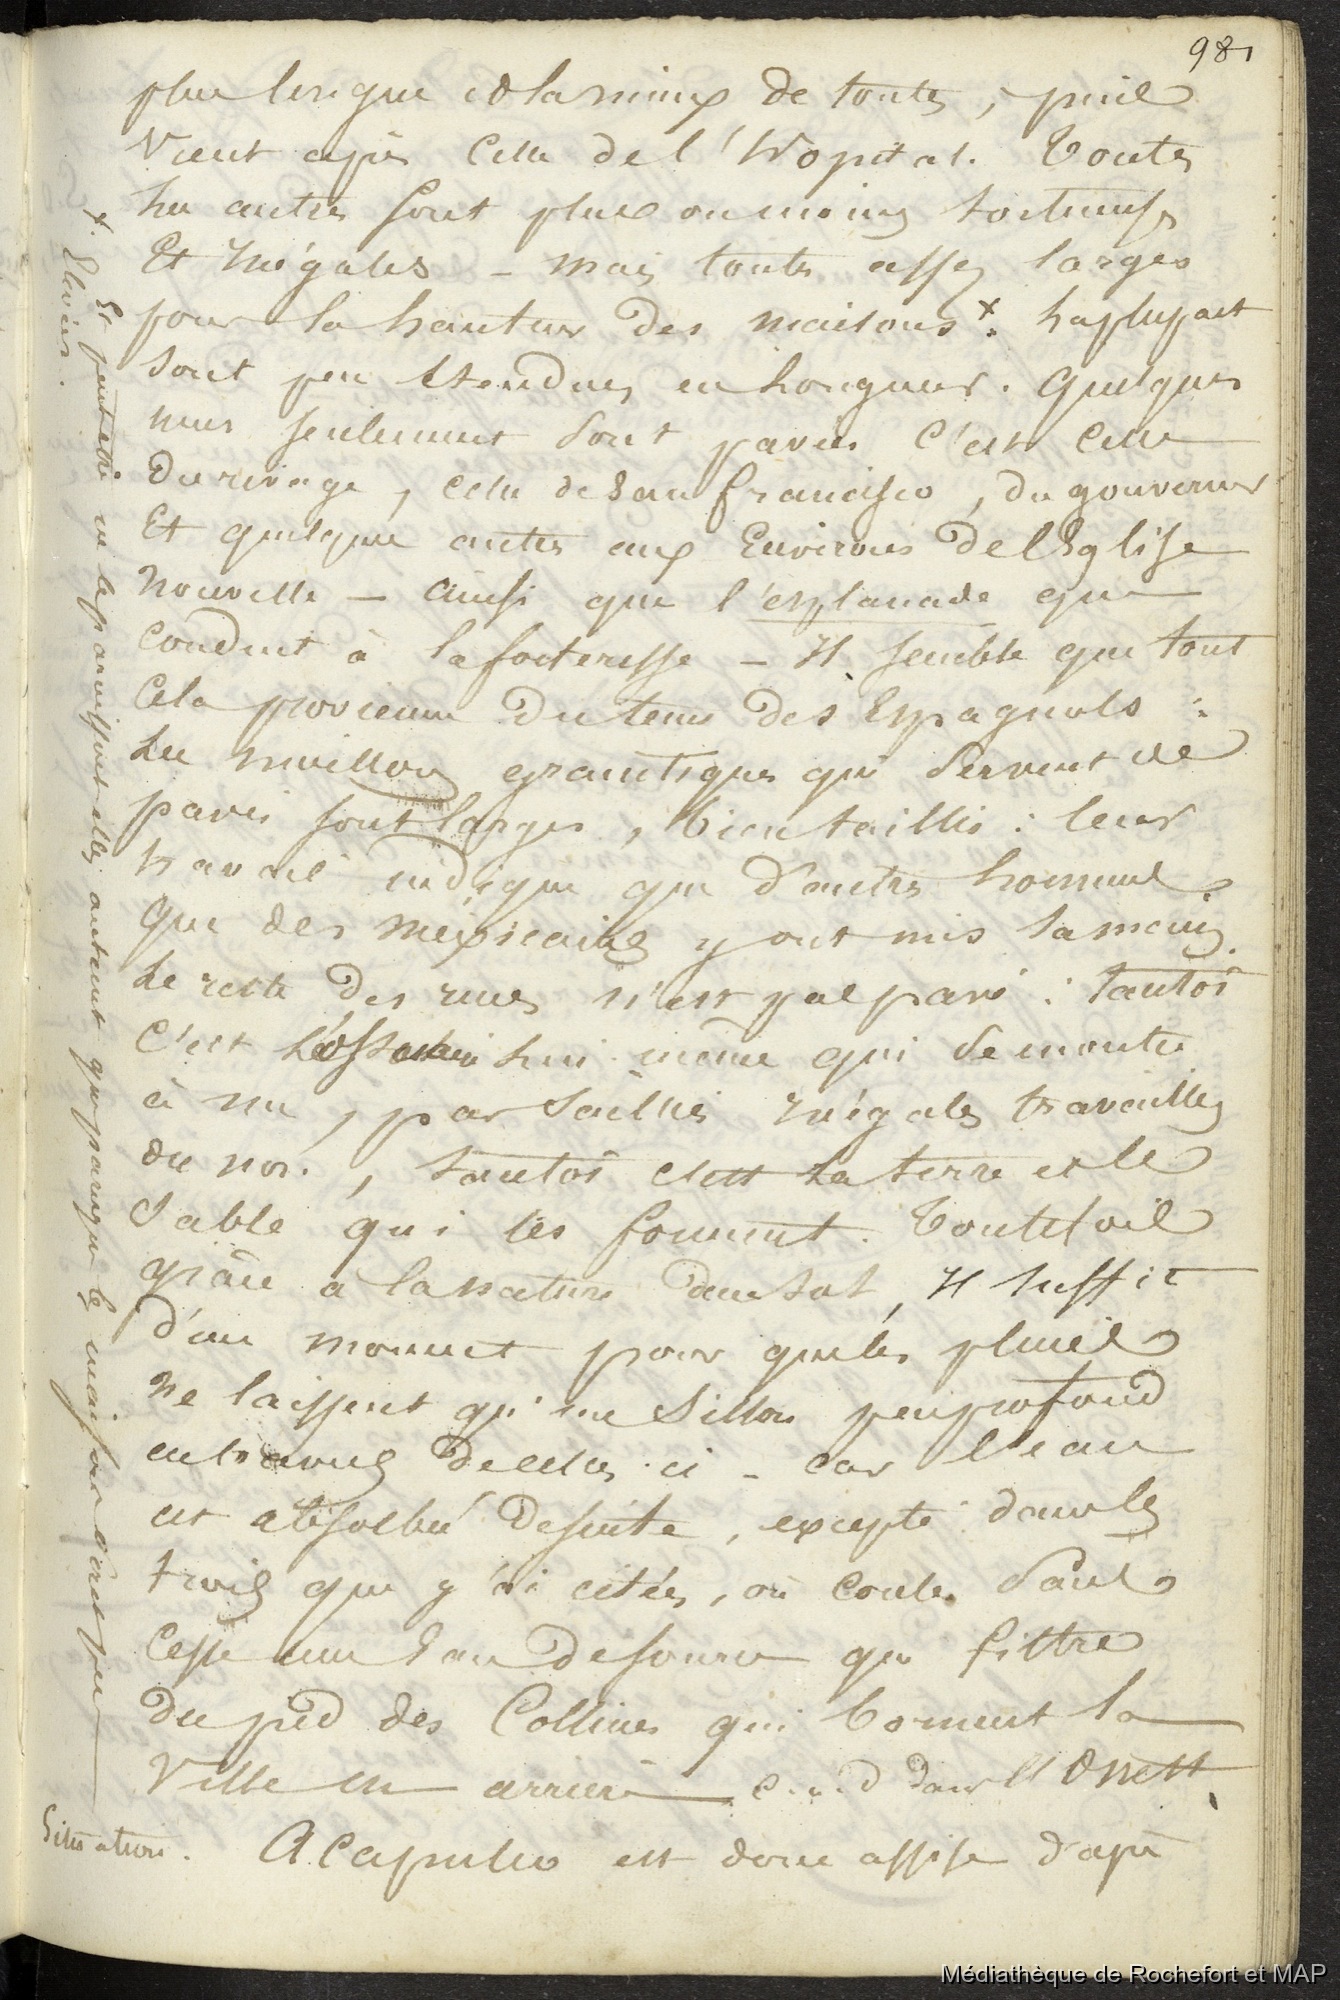 981
plus longue et la mieux de toutes ; puis
vient après celle de l'hopital. Toutes
les autres sont plus ou moins tortueuses
et inégales – mais toutes assez larges
pour la hauteur des maisons x. La plupart
sont peu étendues en longueur. Quelques
unes seulement sont pavées c'est celle
du rivage, celle de San francisco, du gouverneur
Et quelques autres aux Environs de l'Eglise
nouvelle – ainsi que l'esplanade qui
conduit à la forteresse – Il semble que tout
cela provienne du tems des Espagnols :
Les moëllons granitiques qui servent de
pavés sont larges, bien taillés : leur
travail indique que d'autres hommes
que des méxicains y ont mis la main.
Le reste des rues n'est pas pavé : tantôt
c'est lui même qui se montre
à nu, par saillies inégales travaillées
, tantôt c'est la terre et le
sable qui les forment. Toutefois
grâce a la nature du sol, il suffit
d'un moment pour que les pluies
ne laissent qu'un sillon peu profond
en travers de celles-ci – car l'eau
est absolbée de suite, excepté dans les
trois que j'ai citées, où coule sans
cesse une eau de source qui filtre
du pied des Collines qui bornent la
Ville en arrière dans l'Ouest.
Situation. Acapulco est donc assise d'apr
x. Et peut être ne le paraissent elles autant que parceque les maisons sont peu
Elevées.
Médiathèque de Rochefort et MAP